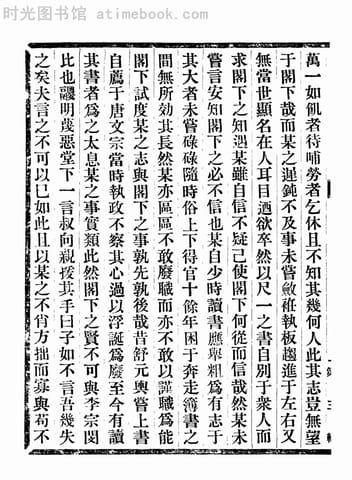 时光图书馆 atimebook.com
萬一如飢者待哺勞者乞休且不知其幾何人此其志豈無望
于閣下哉而某之遲鈍不及事未嘗斂稚執板趨進于左右又
無當世顯名在人耳目迺欲卒然以尺一之書自別于衆人而
求閣下之知遇某雖自信不疑己使閣下何從而信哉然某未
嘗言安知閣下之必不信也某自少時讀書應舉粗爲有志于
其大者未嘗碌碌隨時俗上下得官十餘年困于奔走簿書之
間無所効其長然某亦區區不敢廢職而亦不敢以謹職爲能
閣下試度某之志與閣下之事孰先孰後哉昔舒元輿嘗上書
自薦于唐文宗當時執政不察其心過以浮誕爲廢至今有讀
其書者爲之太息某之事實類此然閣下之賢不可與李宗閔
比也鬷明蔑惡堂下一言叔向親援其手曰子如不言吾幾失
之矣夫言之不可以已如此且以某之不肖方拙而寡與苟不